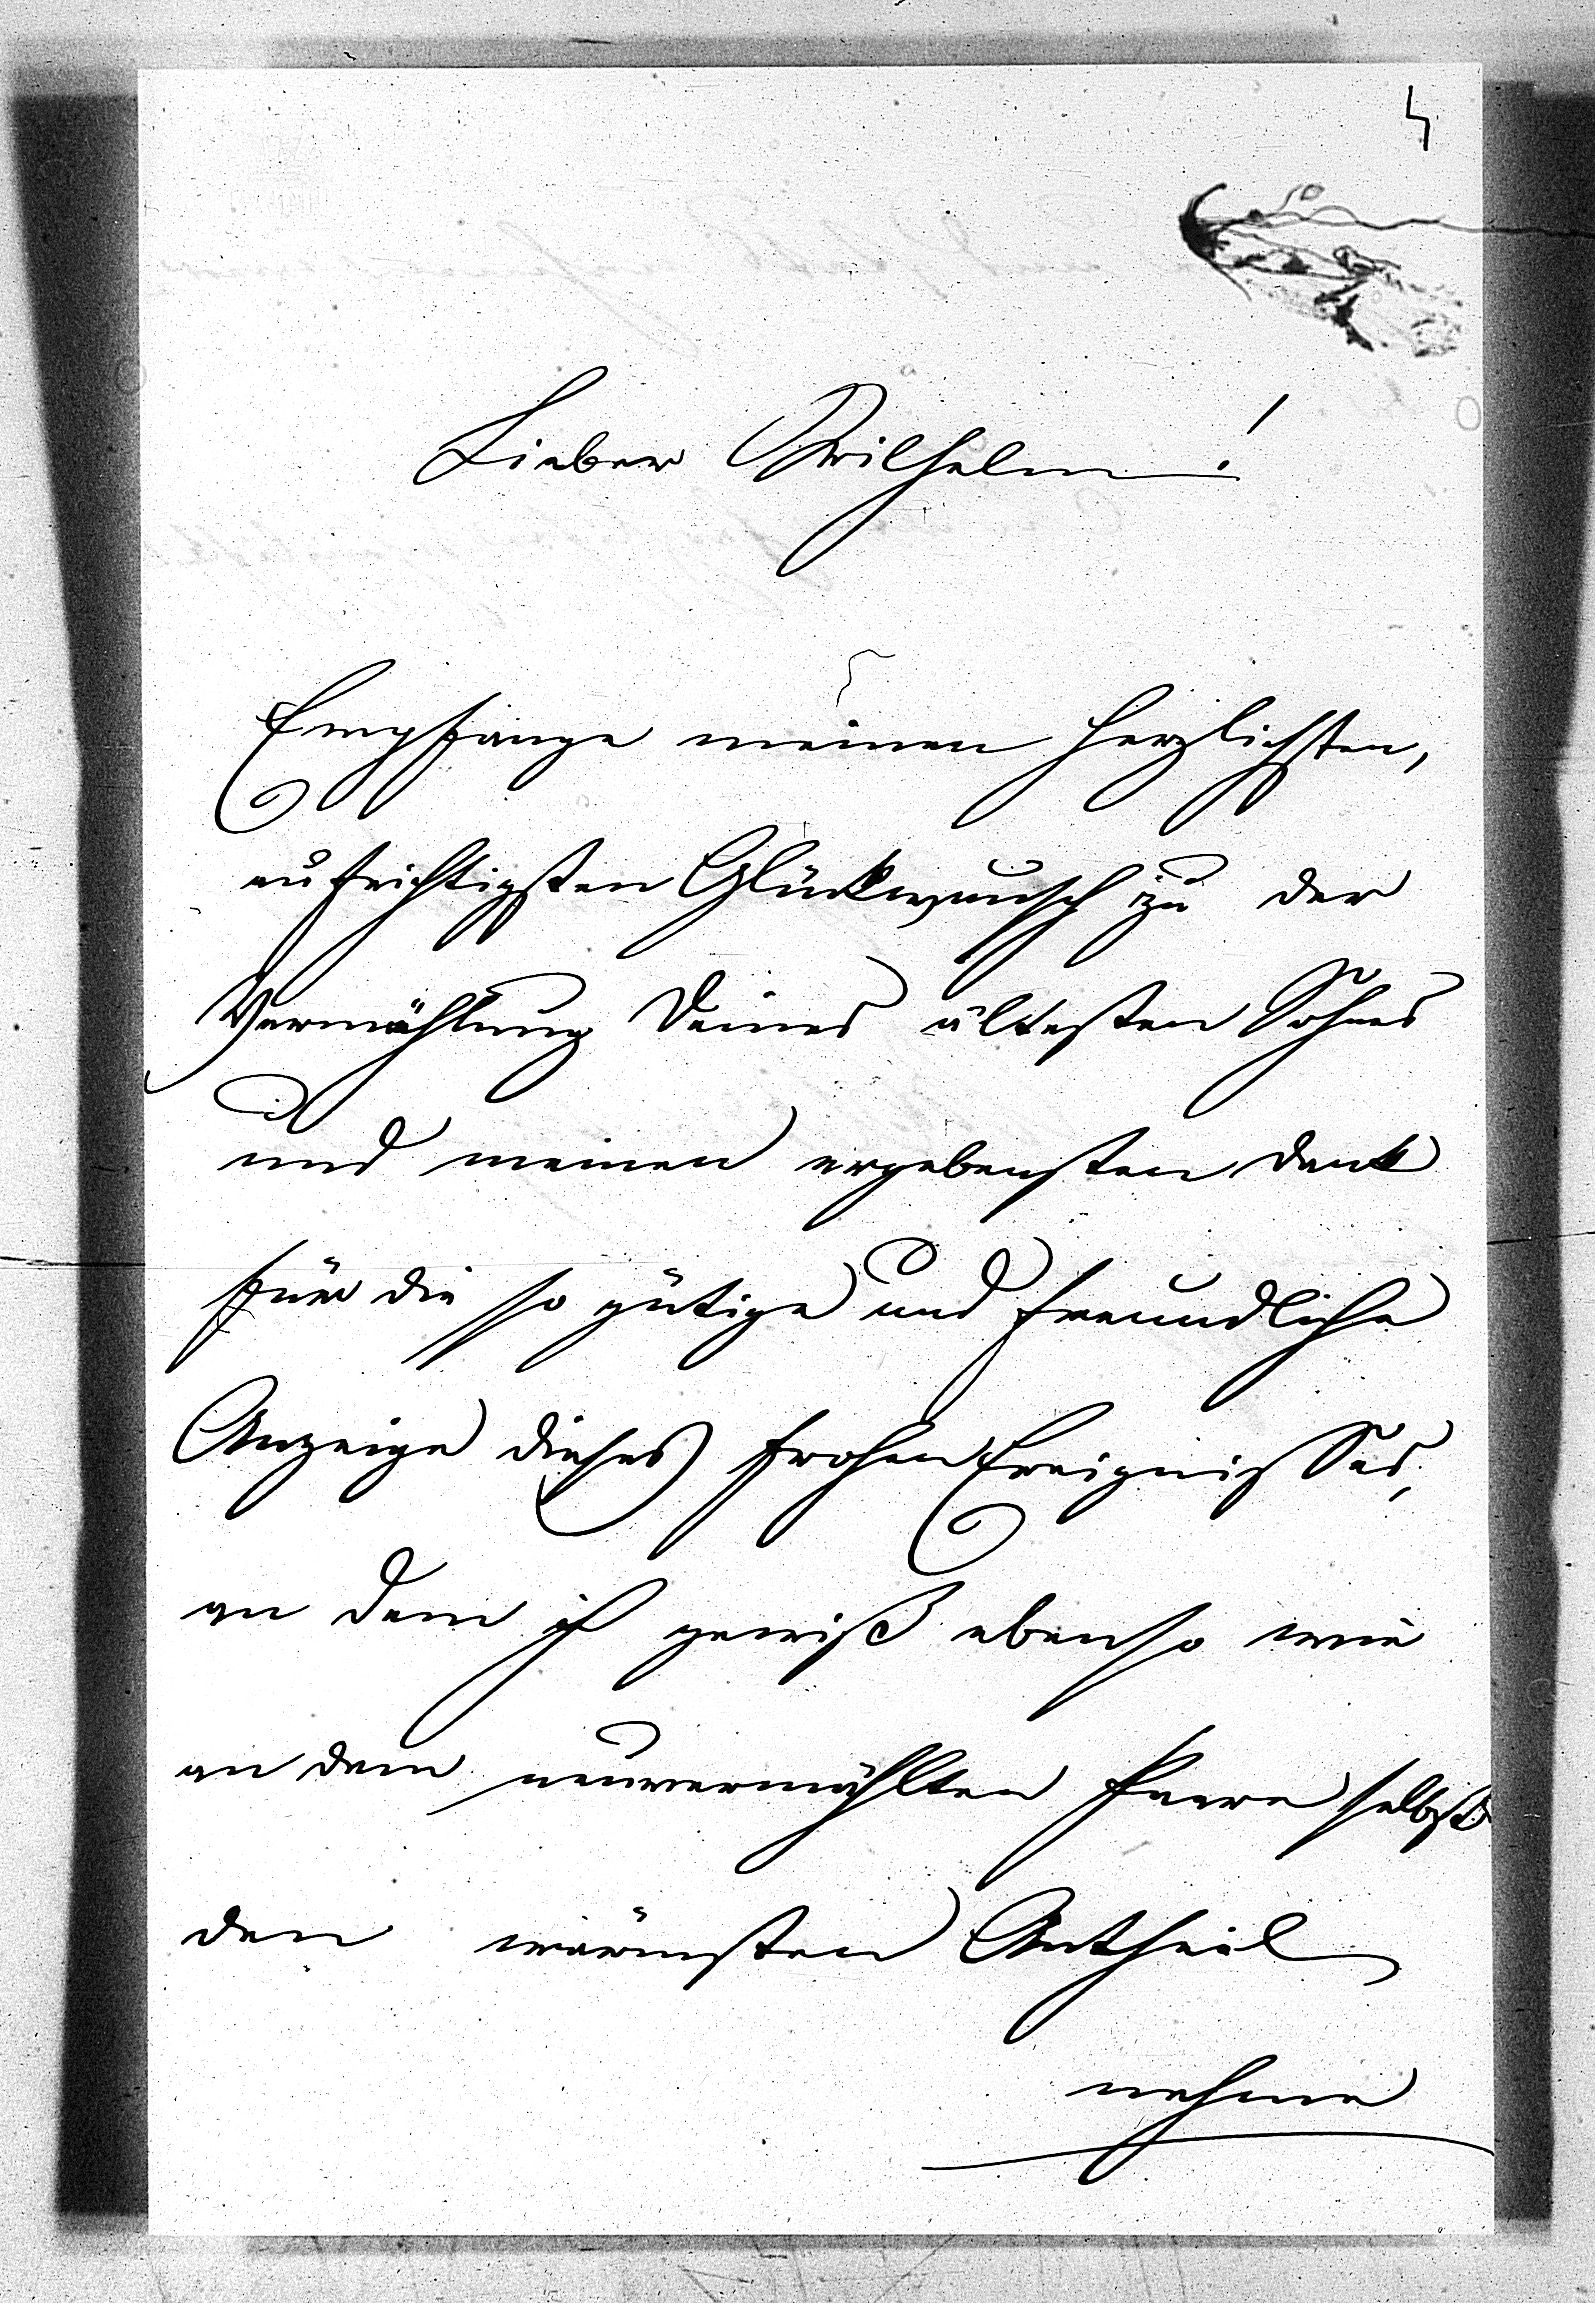 4
Lieber Wilhelm!
Empfange meinen herzlichsten,
aufrichtigsten Glückwunsch zu der
Vermählung Deines ältesten Sohnes
und meinen ergebensten Dank
für die so gütige und freundliche
Anzeige dieses frohen Ereignisses,
an dem ich gewiß ebenso wie
an dem neuvermählten Paare selbst
den wärmsten Antheil
nehme